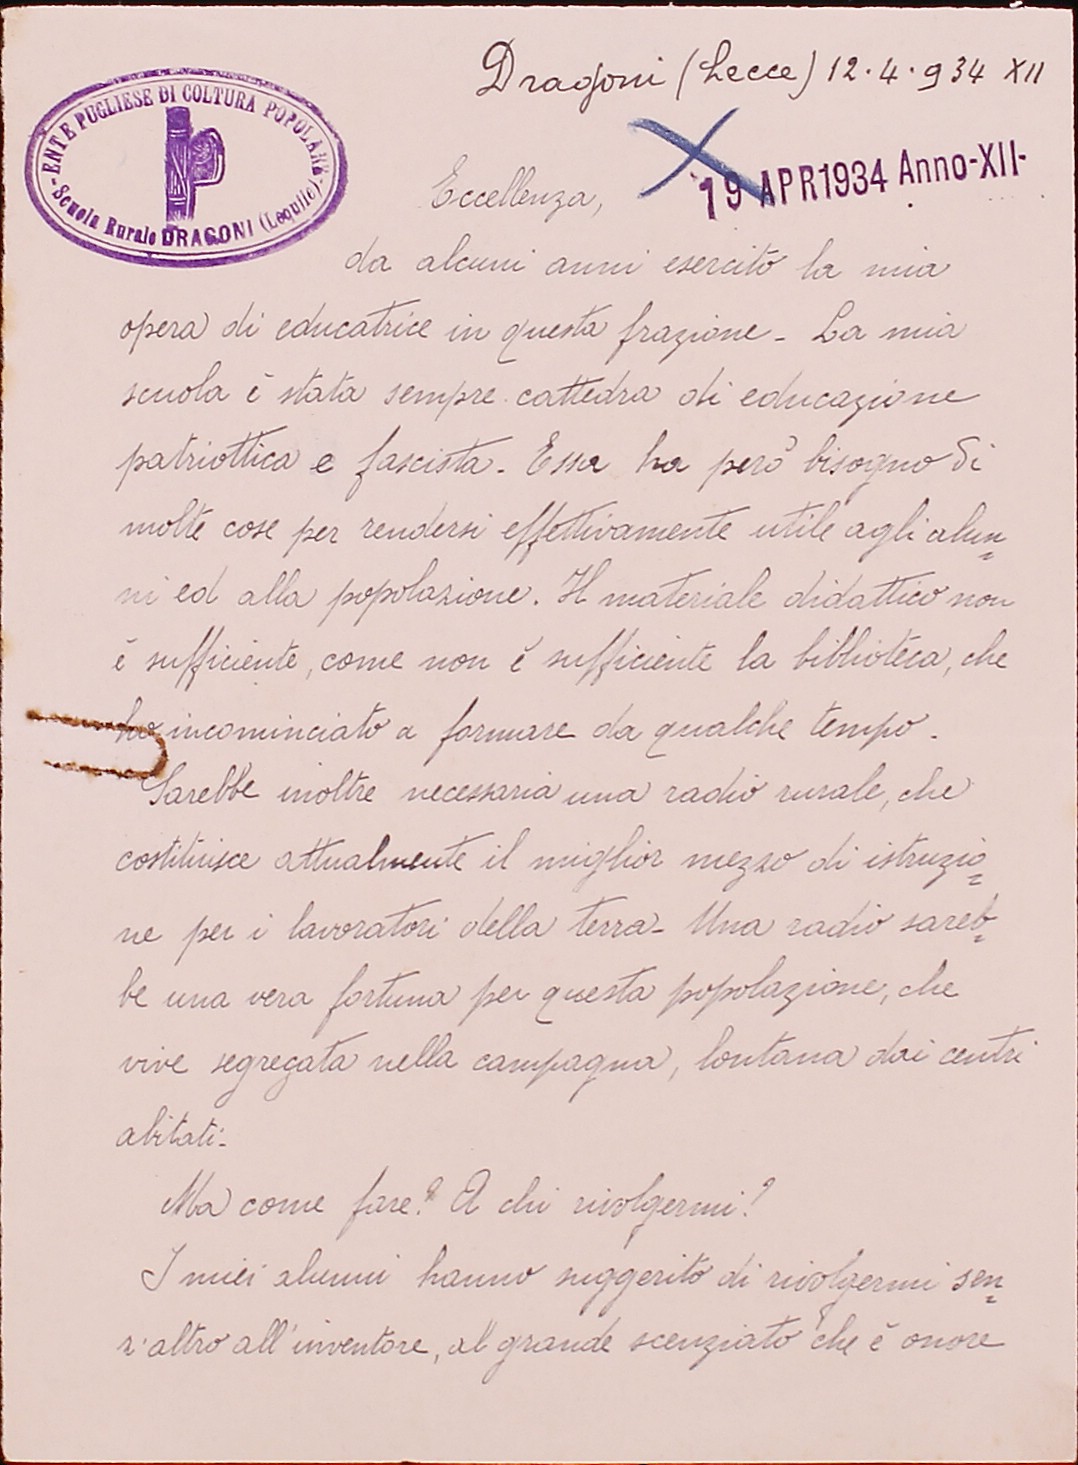 Dragoni (Lecce) 12.4.934 XII
ENTE PUGLIESE DI COLTURA POPOLARE
Scuola Rurale DRAGONI (Lequile)
19 APR 1934 Anno-XII-
Eccellenza,
da alcuni anni esercito la mia
opera di educatrice in questa frazione - La mia
scuola è stata sempre cattedra di educazione
patriottica e fascista. Essa ha però bisogno di
molte cose per rendersi effettivamente utile agli alun=
ni ed alla popolazione. Il materiale didattico non
è sufficiente, come non è sufficiente la biblioteca, che
ho incominciato a formare da qualche tempo.
Sarebbe inoltre necessaria una radio rurale, che
costituisce attualmente il miglior mezzo di istruzio=
ne per i lavoratori della terra - Una radio sareb=
be una vera fortuna per questa popolazione, che
vive segregata nella campagna, lontana dai centri
abitati -
Ma come fare? A chi rivolgermi?
I miei alunni hanno suggerito di rivolgermi sen=
z'altro all'inventore, al grande scenziato che è onore